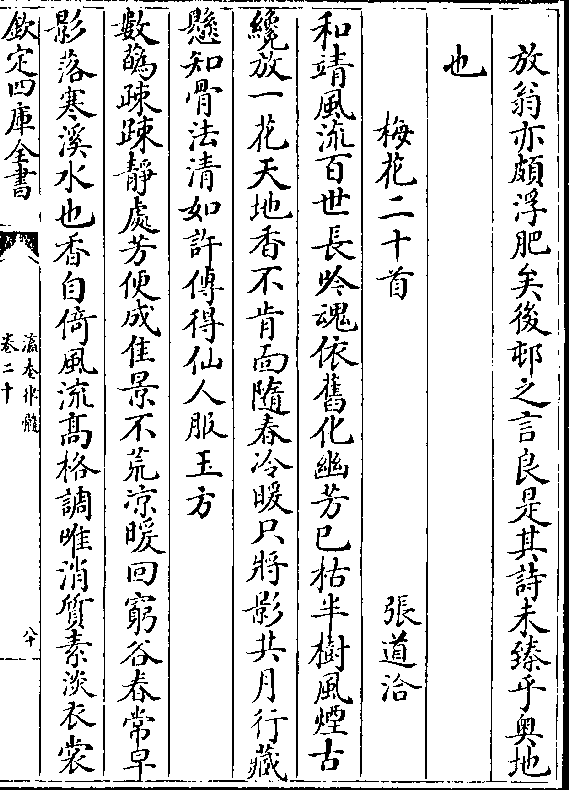 放翁亦頗浮肥矣後邨之言良是其詩未臻乎奥地
也
梅花二十首 張道洽
和靖風流百世長吟魂依舊化幽芳已枯半樹風煙古
纔放一花天地香不肯面隨春冷暖只將影共月行藏
懸知骨法清如許傳得仙人服玉方
數點疎疎靜處芳便成佳景不荒凉暖回窮谷春常早
影落寒溪水也香自倚風流高格調唯消質素淡衣裳
欽定四庫全書
瀛奎律髓
卷二十
八十